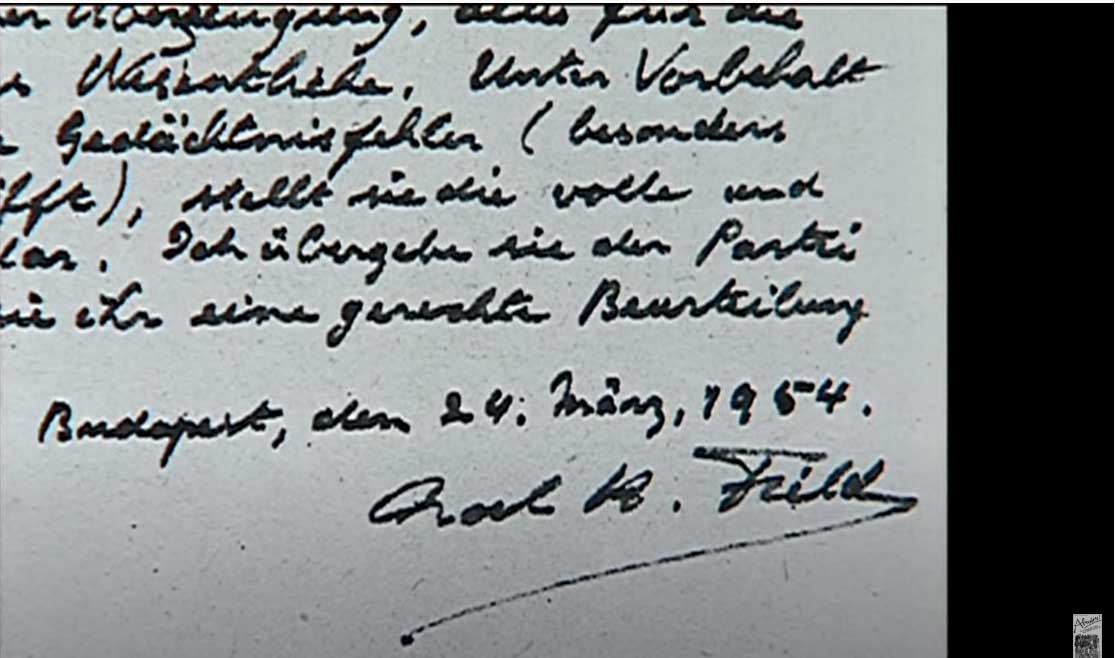 Überzeugung, alles für die
Wesentliche. Unter Vorbehalt
Gedächtnisfehler (besonders
ifft), stellt sie die volle und
dar. Ich übergebe sie der Partei
ihr eine gerechte Beurteilung
Budapest, den 24. März, 1954.
Noel H. Field